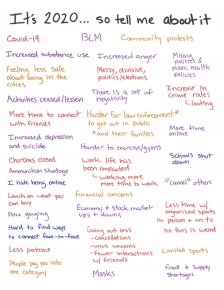 It's 2020... so tell me about it
Covid-19
BLM
Community protests
Increased substance use
Increased anger
Mixing
politics &
public health
policies
Feeling less safe
about being in the
cities
Messy, divisive,
politics/elections
Activities ceased/lessen
There is a lot of
negativity
Increase in
crime rates
↳ looting
More time to connect
with friends
Harder for law enforcement
to go out in public
* and their families
More time
online
Increased depression
and suicide
Harder to exercise/gyms
Churches closed
Work life has
been impacted
↳ working more
more time to work
Schools shut
down
Ammunition shortage
↳ hate being online
"Cancel" others
Limits on what you
can buy
Financial concerns
Price gouging
Economy & stock market
ups & downs
Less time w/
organized sports
in person + on tv
Hard to find ways
to connect face-to-face
Going out less
-cancellations
-virus concerns
-fewer interactions
w/ friends
no fans is weird
Less patience
Limited sports
People put you into
one category
Masks
Food & supply
shortages